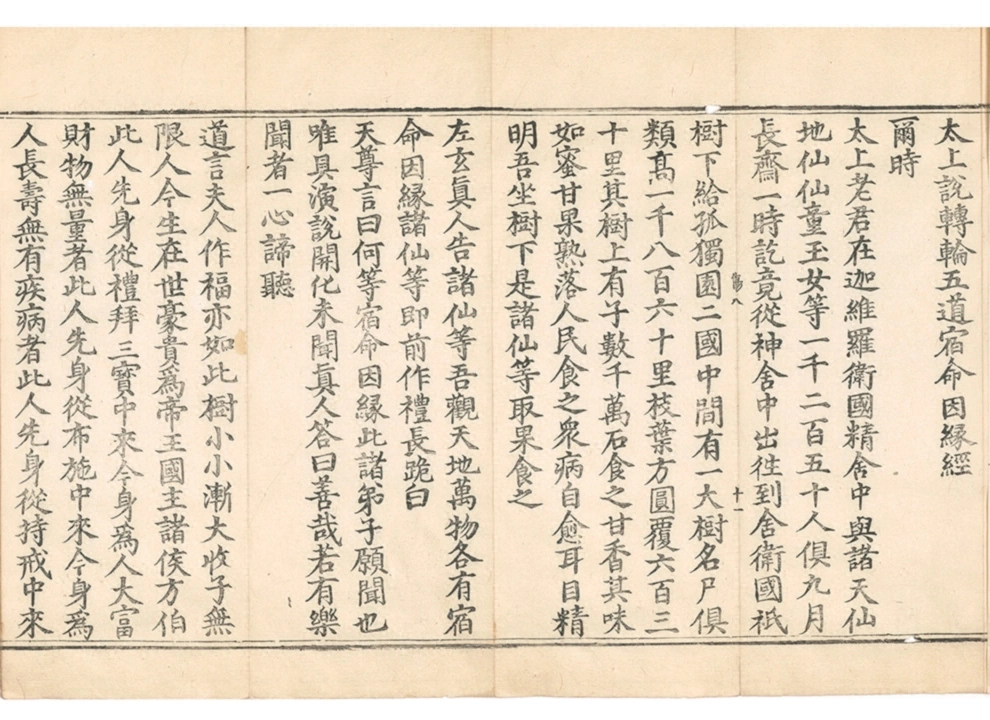 太上說轉輪五道宿命因緣經
爾時
太上老君在迦維羅衛國精舍中與諸天仙
地仙仙童玉女等一千二百五十人俱九月
長齋一時訖竟從神舍中出徃到舍衛國祇
樹下給孤獨園二國中間有一大樹名尸俱
類髙一千八百六十里枝葉方圓覆六百三
十里其樹上有子數千萬石食之甘香其味
如蜜甘果熟落人民食之衆病自愈耳目精
明吾坐樹下是諸仙等取果食之
左玄眞人告諸仙等吾觀天地萬物各有宿
命因緣諸仙等即前作禮長跪白
天尊言曰何等宿命因緣此諸弟子願聞也
唯具演說開化未聞眞人答曰善哉若有樂
聞者一心諦聽
道言夫人作福亦如此樹小小漸大收子無
限人今生在世豪貴爲帝王國主諸侯方伯
此人先身從禮拜三寶中來今身爲人大富
財物無量者此人先身從布施中來今身爲
人長壽無有疾病者此人先身從持戒中來
十一